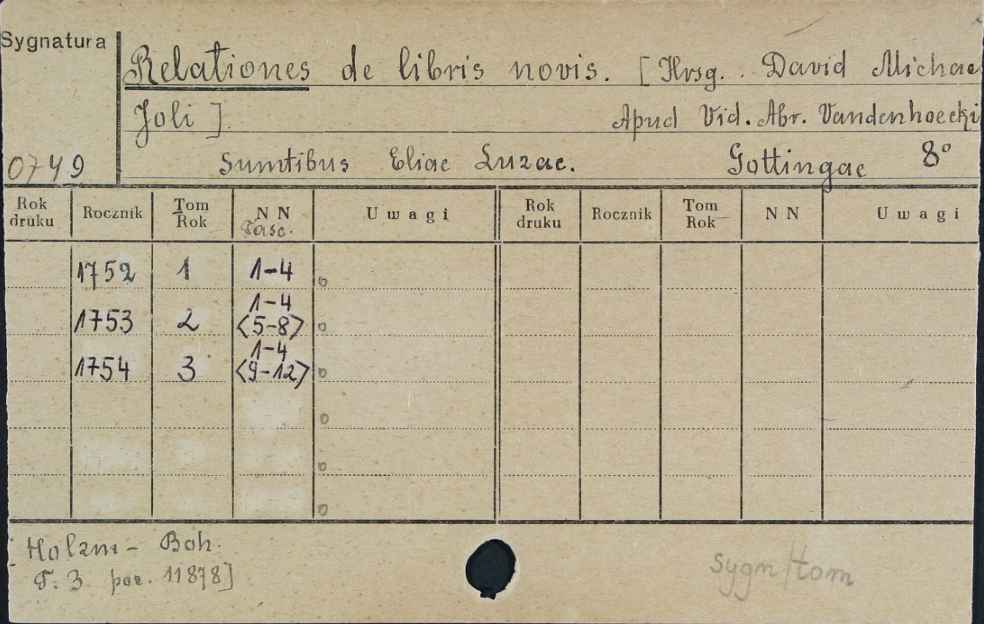 Sygnatura
Relationes de libris novis. [Hrsg. David Michae
Joli].
Apud Vid. Abr. Vandenhoecki
0749 Sumtibus Eliae Luzac. Gottingae 8°
Rok druku Rocznik Tom Rok NN Fasc. Uwagi Rok druku Rocznik Tom Rok NN Uwagi
1752 1 1-4
1753 2 1-4 <5-8>
1754 3 1-4 <9-12>
Holzm- Boh.
T. 3. poz. 11878]
sygn/tom